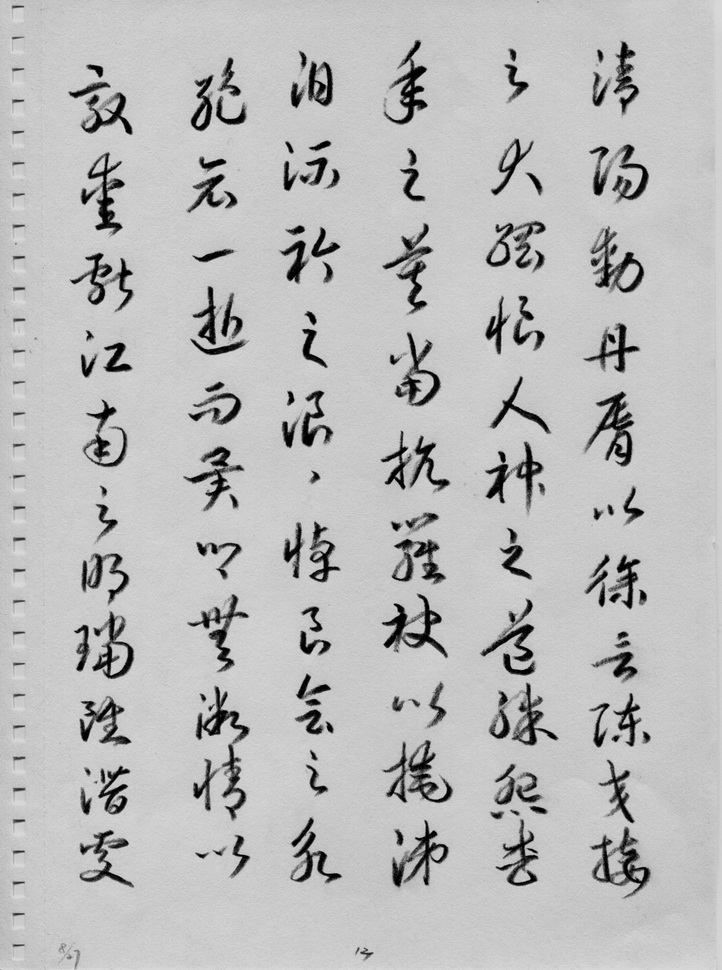 清陽動丹脣以徐言陳交接
之大綱恨人神之道殊怨盛
年之莫當抗羅袂以掩涕
泪流衿之浪、悼良会之永
絕哀一逝而異鄉無微情以
效愛獻江南之明璫雖潛處
8/27